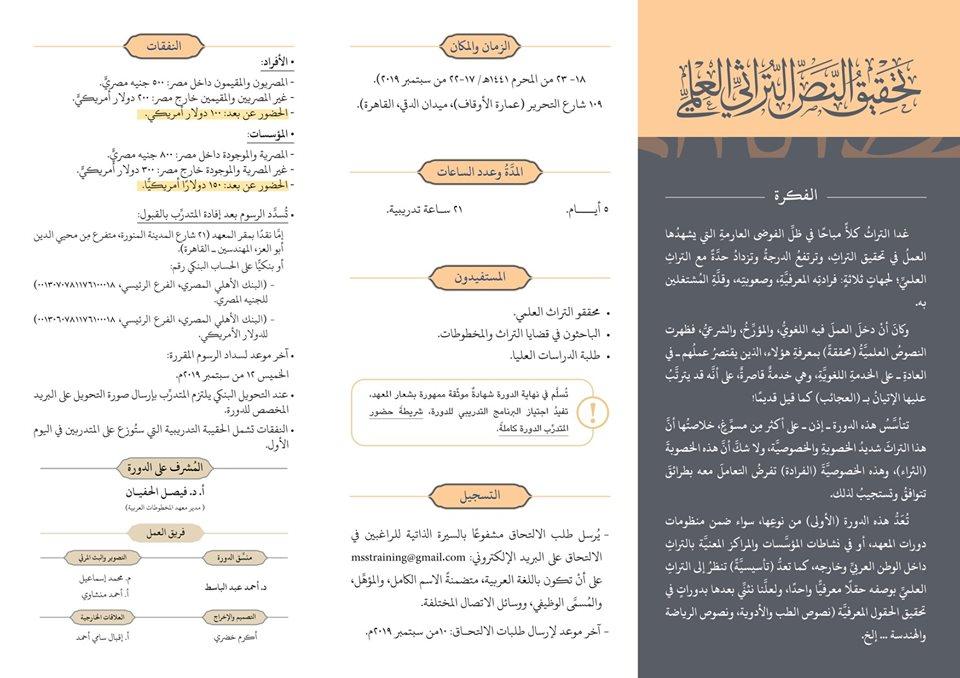 تحقيق النص التراثي العلمي
الفكرة
غدا التراثُ كلأً مباحًا في ظلِّ الفوضى العارمةِ التي يشهدُها
العملُ في تحقيق التراثِ، وترتفعُ الدرجةُ وتزدادُ حدَّةً مع التراثِ
العلميِّ؛ لجهاتٍ ثلاثةٍ: فرادتِه المعرفيَّةِ، وصعوبتِه، وقلَّةِ المُشتغلين
به.
وكانَ أنْ دخلَ العملَ فيه اللغويُّ، والمؤرِّخُ، والشرعيُّ، فظهرت
النصوصُ العلميَّةُ (محققةً) بمعرفةِ هؤلاء، الذين يقتصرُ عملُهم ـ في
العادةِ ـ على الخدمةِ اللغويَّةِ، وهي خدمةٌ قاصرةٌ، على أنَّه قد يترتَّبُ
عليها الإتيانُ بـ (العجائبِ) كما قيل قديمًا!
تتأسَّسُ هذه الدورة ـ إذن ـ على أكثر مِن مسوِّغٍ، خلاصتُها أنَّ
هذا التراثَ شديدُ الخصوبةِ والخصوصيَّة، ولا شكَّ أنَّ هذه الخصوبة
(الثراء)، وهذه الخصوصيَّة (الفرادة) تفرضُ التعاملَ معه بطرائقَ
تتوافقُ وتستجيبُ لذلك.
تُعَدُّ هذه الدورة (الأولى) من نوعِها، سواء ضمن منظومات
دورات المعهد، أو في نشاطات المؤسَّسات والمراكز المعنيَّة بالتراثِ
داخل الوطن العربيِّ وخارجه، كما تعدُّ (تأسيسيَّةً) تنظرُ إلى التراثِ
العلميِّ بوصفه حقلًا معرفيًّا واحدًا، ولعلَّنا نثنِّي بعدها بدوراتٍ في
تحقيق الحقول المعرفيَّة (نصوص الطب والأدوية، ونصوص الرياضة
والهندسة ... إلخ.
الزمان والمكان
١٨- ٢٣ من المحرم ١٤٤١هـ/ ١٧-٢٢ من سبتمبر ٢٠١٩م).
١٠٩ شارع التحرير (عمارة الأوقاف)، ميدان الدقي، القاهرة).
المدَّةُ وعدد الساعات
٥ أيـــــام. ٢١ ساعة تدريبية.
المستفيدون
• محققو التراث العلمي.
• الباحثون في قضايا التراث والمخطوطات.
• طلبة الدراسات العليا.
تُسلَّم في نهاية الدورة شهادةٌ موثَّقة ممهورة بشعار المعهد،
تفيدُ اجتيازَ البرنامج التدريبي للدورة، شريطةَ حضور
المتدرِّب الدورة كاملةً.
التسجيل
- يُرسل طلب الالتحاق مشفوعًا بالسيرة الذاتية للراغبين في
الالتحاق على البريد الإلكتروني: msstraining@gmail.com
على أنْ تكون باللغة العربية، متضمنةً الاسم الكامل، والمؤهَّل،
والمُسمَّى الوظيفي، ووسائل الاتصال المختلفة.
- آخر موعد لإرسال طلبات الالتحاق: ١٠من سبتمبر ٢٠١٩م.
النفقات
• الأفراد:
- المصريون والمقيمون داخل مصر: ٥٠٠ جنيه مصريٍّ.
- غير المصريين والمقيمين خارج مصر: ٢٠٠ دولار أمريكيٍّ.
- الحضور عن بعد: ١٠٠ دولار أمريكي.
• المؤسسات:
- المصرية والموجودة داخل مصر: ٨٠٠ جنيه مصريٍّ.
- غير المصرية والموجودة خارج مصر: ٣٠٠ دولار أمريكيٍّ.
- الحضور عن بعد: ١٥٠ دولارًا أمريكيًّا.
• تُسدَّد الرسوم بعد إفادة المتدرِّب بالقبول:
إمَّا نقدًا بمقر المعهد (٢١ شارع المدينة المنورة، متفرع مِن محيي الدين
أبو العز، المهندسين ــ القاهرة).
أو بنكيًّا على الحساب البنكي رقم:
- (البنك الأهلي المصري، الفرع الرئيسي، ٠٠١٣٠٧٠٧٨١١٧٦١٠٠٠١٨)
للجنيه المصري.
- (البنك الأهلي المصري، الفرع الرئيسي، ٠٠١٣٠٦٠٧٨١١٧٦١٠٠٠١٨)
للدولار الأمريكي.
• آخر موعد لسداد الرسوم المقررة:
الخميس ١٢ من سبتمبر ٢٠١٩م.
• عند التحويل البنكي يلتزم المتدرِّب بإرسال صورة التحويل على البريد
المخصص للدورة.
• النفقات تشمل الحقيبة التدريبية التي ستُوزع على المتدربين في اليوم
الأول.
المُشرف على الدورة
أ. د. فيصـل الحفيـان
( مدير معهد المخطوطات العربية)
فريق العمل
منسِّق الدورة
د. أحمد عبد الباسط
التصوير والبث المرئي
م. محمد إسماعيل
أ. أحمد منشاوي
التصميم والإخراج
أكرم خضري
العلاقات الخارجية
أ. إقبال سامي أحمد